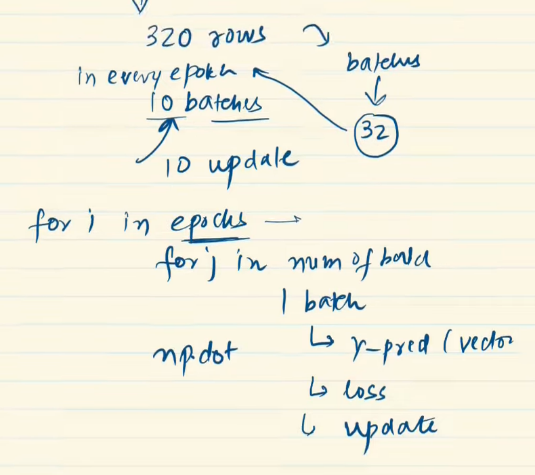 320 rows
batches
in every epokh
10 batches
32
10 update
for i in epochs
for j in num of
1 batch
np.dot
y-pred (vector
loss
update